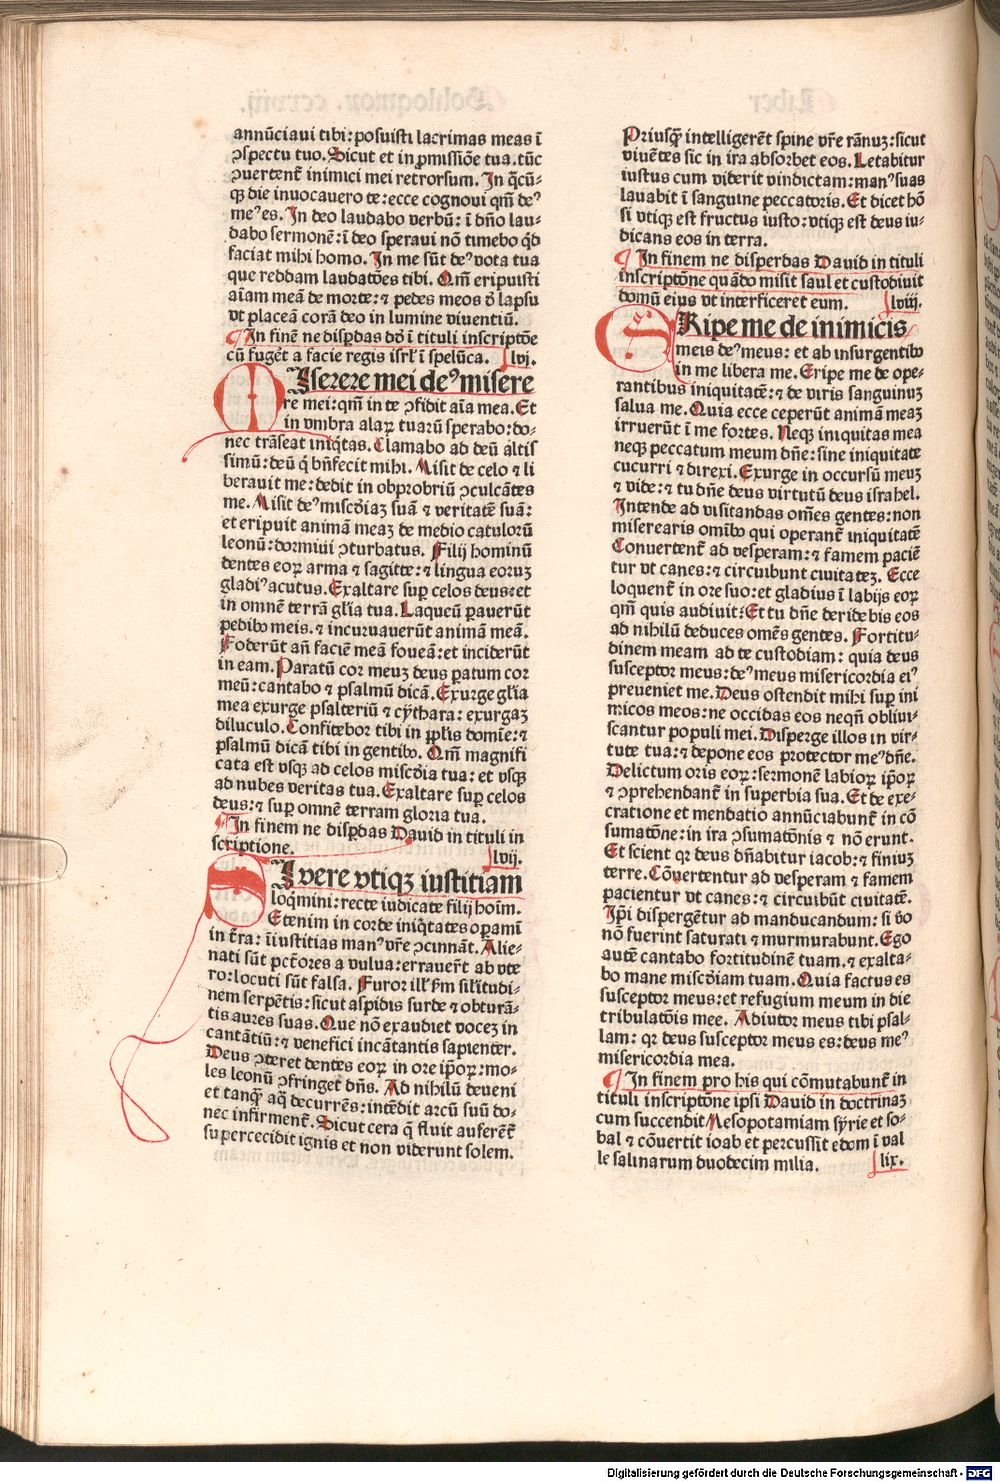 annūciaui tibi: posuisti lacrimas meas ī
ꝯspectu tuo. Sicut et in ꝓmissiōe tua. tūc
ꝯuertent᷑ inimici mei retrorsum. In q̄cū⸗
qꝫ die inuocauero te: ecce cognoui qm̄ deꝰ
meꝰ es. In deo laudabo verbū: ī dn̄o lau⸗
dabo sermonē: ī deo speraui nō timebo qd̄
faciat mihi homo. In me sūt deꝰ vota tua
que reddam laudatōes tibi. Qm̄ eripuisti
aīam meā de morte: ⁊ pedes meos d̄ lapsu
vt placeā corā deo in lumine viuentiū.
¶ In finē ne disꝑdas dd̄ ī tituli inscriptōe
cū fuget᷑ a facie regis isrl̄ ī spelūca. lvi.
MIserere mei deꝰ misere
re mei: qm̄ in te ꝯfidit aīa mea. Et
in vmbra alaꝝ tuarū sperabo: do⸗
nec trāseat iniq̇tas. Clamabo ad deū altis
simū: deū q̇ bn̄fecit mihi. Misit de celo ⁊ li
berauit me: dedit in obprobriū ꝯculcātes
me. Misit deꝰ mīscd̄iaꝫ suā ⁊ veritatē suā:
et eripuit animā meaꝫ de medio catulorū
leonū: dormiui ꝯturbatus. Filij hominū
dentes eoꝝ arma ⁊ sagitte: ⁊ lingua eoruꝫ
gladiꝰ acutus. Exaltare suꝑ celos deus: et
in omnē terrā gl̄ia tua. Laqueū ꝑauerūt
pedibꝰ meis. ⁊ incuruauerūt animā meā.
Foderūt an̄ faciē meā foueā: et inciderūt
in eam. Paratū cor meuꝫ deus ꝑatum cor
meū: cantabo ⁊ psalmū dicā. Exurge gl̄ia
mea exurge psalteriū ⁊ cythara: exurgaꝫ
diluculo. Confitebor tibi in ꝓplis domīe: ⁊
psalmū dicā tibi in gentibꝰ. Qm̄ magnifi
cata est vsqꝫ ad celos mīscd̄ia tua: et vsqꝫ
ad nubes veritas tua. Exaltare suꝑ celos
deus: ⁊ suꝑ omnē terram gloria tua.
¶ In finem ne disꝑdas Dauid in tituli in
scriptione. lvij.
SI vere vtiqꝫ iustitiam
loq̇mini: recte iudicate filij hoīm.
Etenim in corde iniq̇tates oꝑamī
in t̄ra: īiustitias manꝰ vr̄e ꝯcinnāt. Alie⸗
nati sūt pctōres a vulua: erraueṙt ab vte
ro: locuti sūt falsa. Furor illꝭ ẜm sil̄itudi⸗
nem serpētis: sicut aspidis surde ⁊ obturā⸗
tis aures suas. Que nō exaudiet voceꝫ in
cantātiū: ⁊ venefici incātantis sapienter.
Deus ꝯteret dentes eoꝝ in ore ip̄oꝝ: mo⸗
les leonū ꝯfringet dn̄s. Ad nihilū deueni
et tanqꝫ aq̄ decurrēs: intēdit arcū suū do⸗
nec infirment᷑. Sicut cera q̄ fluit auferēt᷑
supercecidit ignis et non viderunt solem.
Priusqꝫ intelligerēt spine vr̄e rānuꝫ: sicut
viuētes sic in ira absorbet eos. Letabitur
iustus cum viderit vindictam: manꝰ suas
lauabit ī sanguine peccatoris. Et dicet hō
si vtiqꝫ est fructus iusto: vtiqꝫ est deus iu⸗
dicans eos in terra.
¶ In finem ne disperdas Dauid in tituli
inscriptōne quādo misit saul et custodiuit
domū eius vt interficeret eum. lviij.
ERipe me de inimicis
meis deꝰ meus: et ab insurgentibꝰ
in me libera me. Eripe me de ope⸗
rantibus iniquitatē: ⁊ de viris sanguinuꝫ
salua me. Quia ecce ceperūt animā meaꝫ
irruerūt ī me fortes. Neqꝫ iniquitas mea
neqꝫ peccatum meum dn̄e: sine iniquitate
cucurri ⁊ direxi. Exurge in occursū meuꝫ
⁊ vide: ⁊ tu dn̄e deus virtutū deus israhel.
Intende ad visitandas om̄es gentes: non
miserearis omībꝰ qui operant᷑ iniquitatē
Conuertent᷑ ad vesperam: ⁊ famem paciē
tur vt canes: ⁊ circuibunt ciuitateꝫ. Ecce
loquent᷑ in ore suo: et gladius ī labijs eoꝝ
qm̄ quis audiuit: Et tu dn̄e deridebis eos
ad nihilū deduces omēs gentes. Fortitu⸗
dinem meam ad te custodiam: quia deus
susceptor meus: deꝰ meus misericordia eiꝰ
preueniet me. Deus ostendit mihi suꝑ ini
micos meos: ne occidas eos neqn̄ obliui⸗
scantur populi mei. Disperge illos in vir⸗
tute tua: ⁊ depone eos protector meꝰ dn̄e.
Delictum oris eoꝝ: sermonē labioꝝ ip̄oꝝ
⁊ ꝯprehendant᷑ in superbia sua. Et de exe⸗
cratione et mendatio annūciabunt᷑ in cō
sumatōne: in ira ꝯsumatōnis ⁊ nō erunt.
Et scient qꝛ deus dn̄abitur iacob: ⁊ finiuꝫ
terre. Cōuertentur ad vesperam ⁊ famem
pacientur vt canes: ⁊ circuibūt ciuitatē.
Ip̄i dispergētur ad manducandum: si v̄o
nō fuerint saturati ⁊ murmurabunt. Ego
autē cantabo fortitudinē tuam. ⁊ exalta⸗
bo mane mīscd̄iam tuam. Quia factus es
susceptor meus: et refugium meum in die
tribulatōis mee. Adiutor meus tibi psal⸗
lam: qꝛ deus susceptor meus es: deus meꝰ
misericordia mea.
¶ In finem pro his qui cōmutabunt᷑ in
tituli inscriptōne ipsi Dauid in doctrinaꝫ
cum succendit Mesopotamiam syrie et so⸗
bal ⁊ cōuertit ioab et percussit edom ī val
le salinarum duodecim milia. lix.
Digitalisierung gefördert durch die Deutsche Forschungsgemeinschaft - DFG